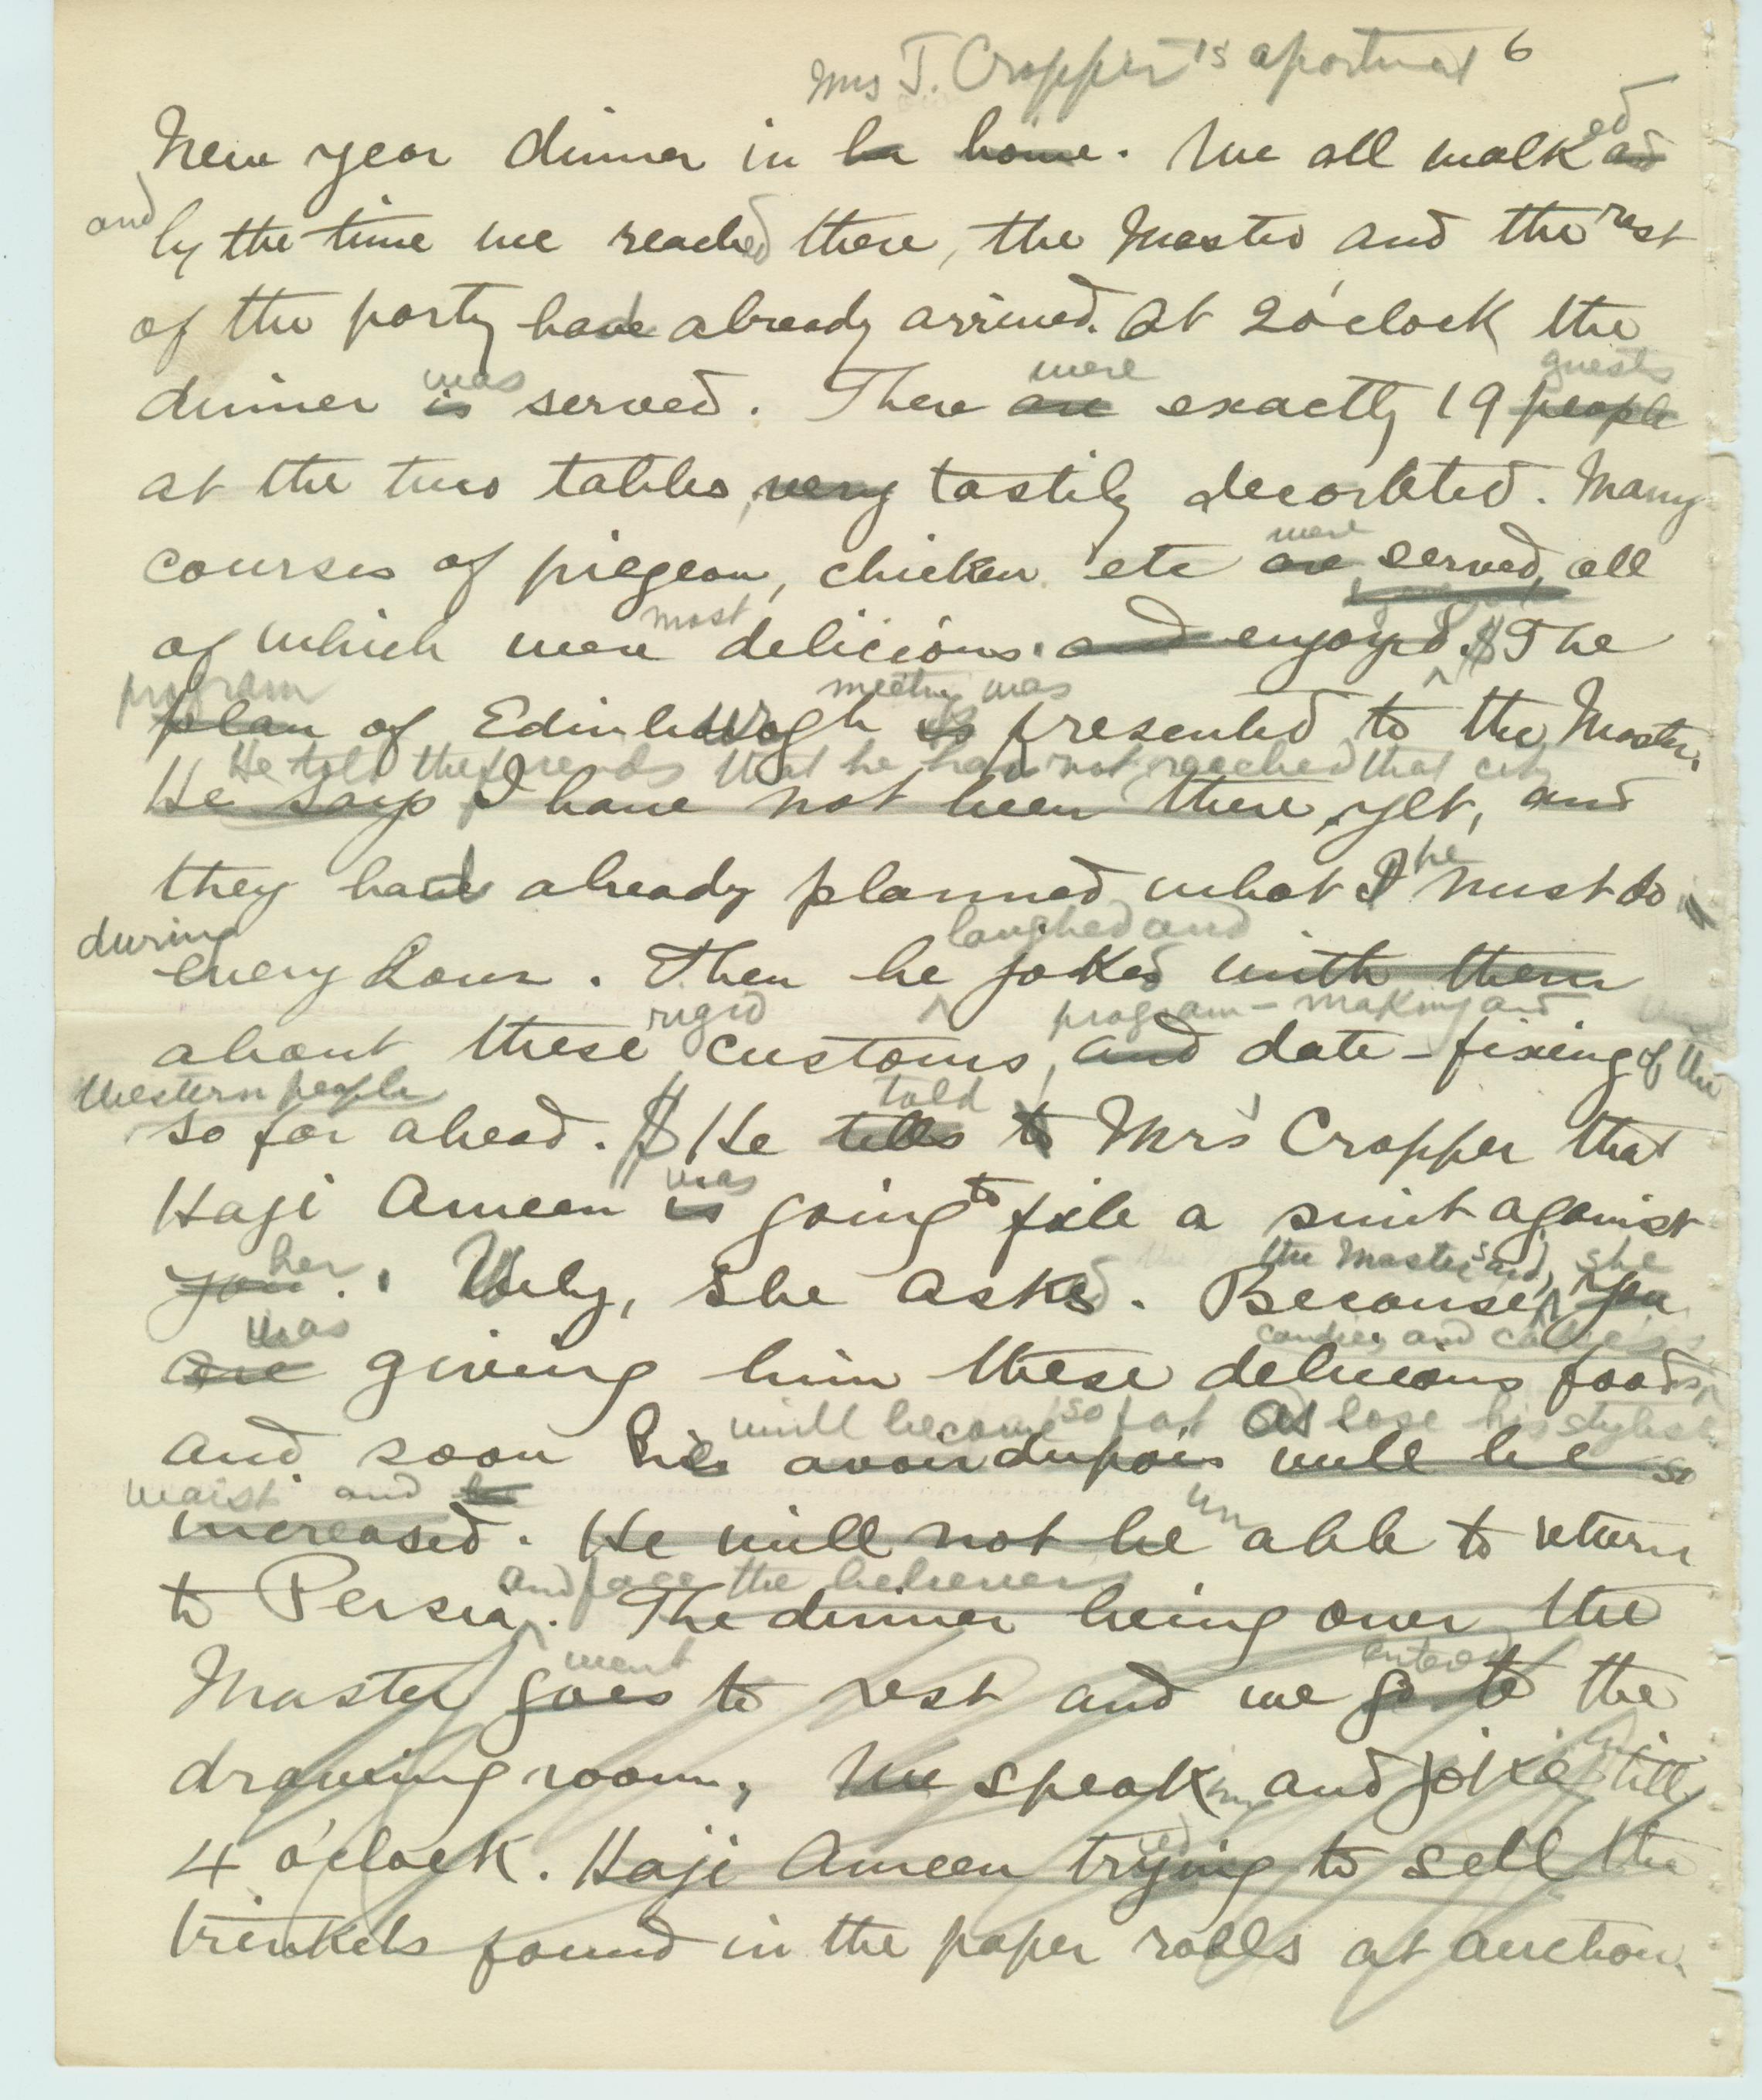 Mrs J. Cropper's apartment 6
New year dinner in her home. We all walk ed and
and by the time we reached there, the Master and the rest
of the party had already arrived. At 2 o'clock the
was were guests
dinner is served. There are exactly 19 people
at the two tables, very tastily decorated. Many
were
courses of piegeon, chicken etc are served, all
most
of which were delicious. and enjoyed. The
program meeting was
plan of Edinburogh is presented to the Master.
He told the friends that he had not reached that city
He says I have not been there yet, and
he
they had already planned what I must do
during laughed and
every hour. Then he joked with them
rigid program-making and
about these customs, and date-fixing of the
Western people told
so far ahead. He tells to Mrs Cropper that
was to
Haji Ameen is going file a suit against
her the Master said, she
you. Why, she asked. Because, you
was candies and cakes
are giving him these delicious foods,
will become so fat as lose his stylish
and soon his avoirdupois will be so
waist and he un
increased. He will not be able to return
and face the believers
to Persia. The dinner being over the
went entered
Master goes to rest and we go to the
ed
drawing room, We speaking and joke till
ed
4 o'clock. Haji Ameen trying to sell the
trinkets found in the paper rolls at auction.